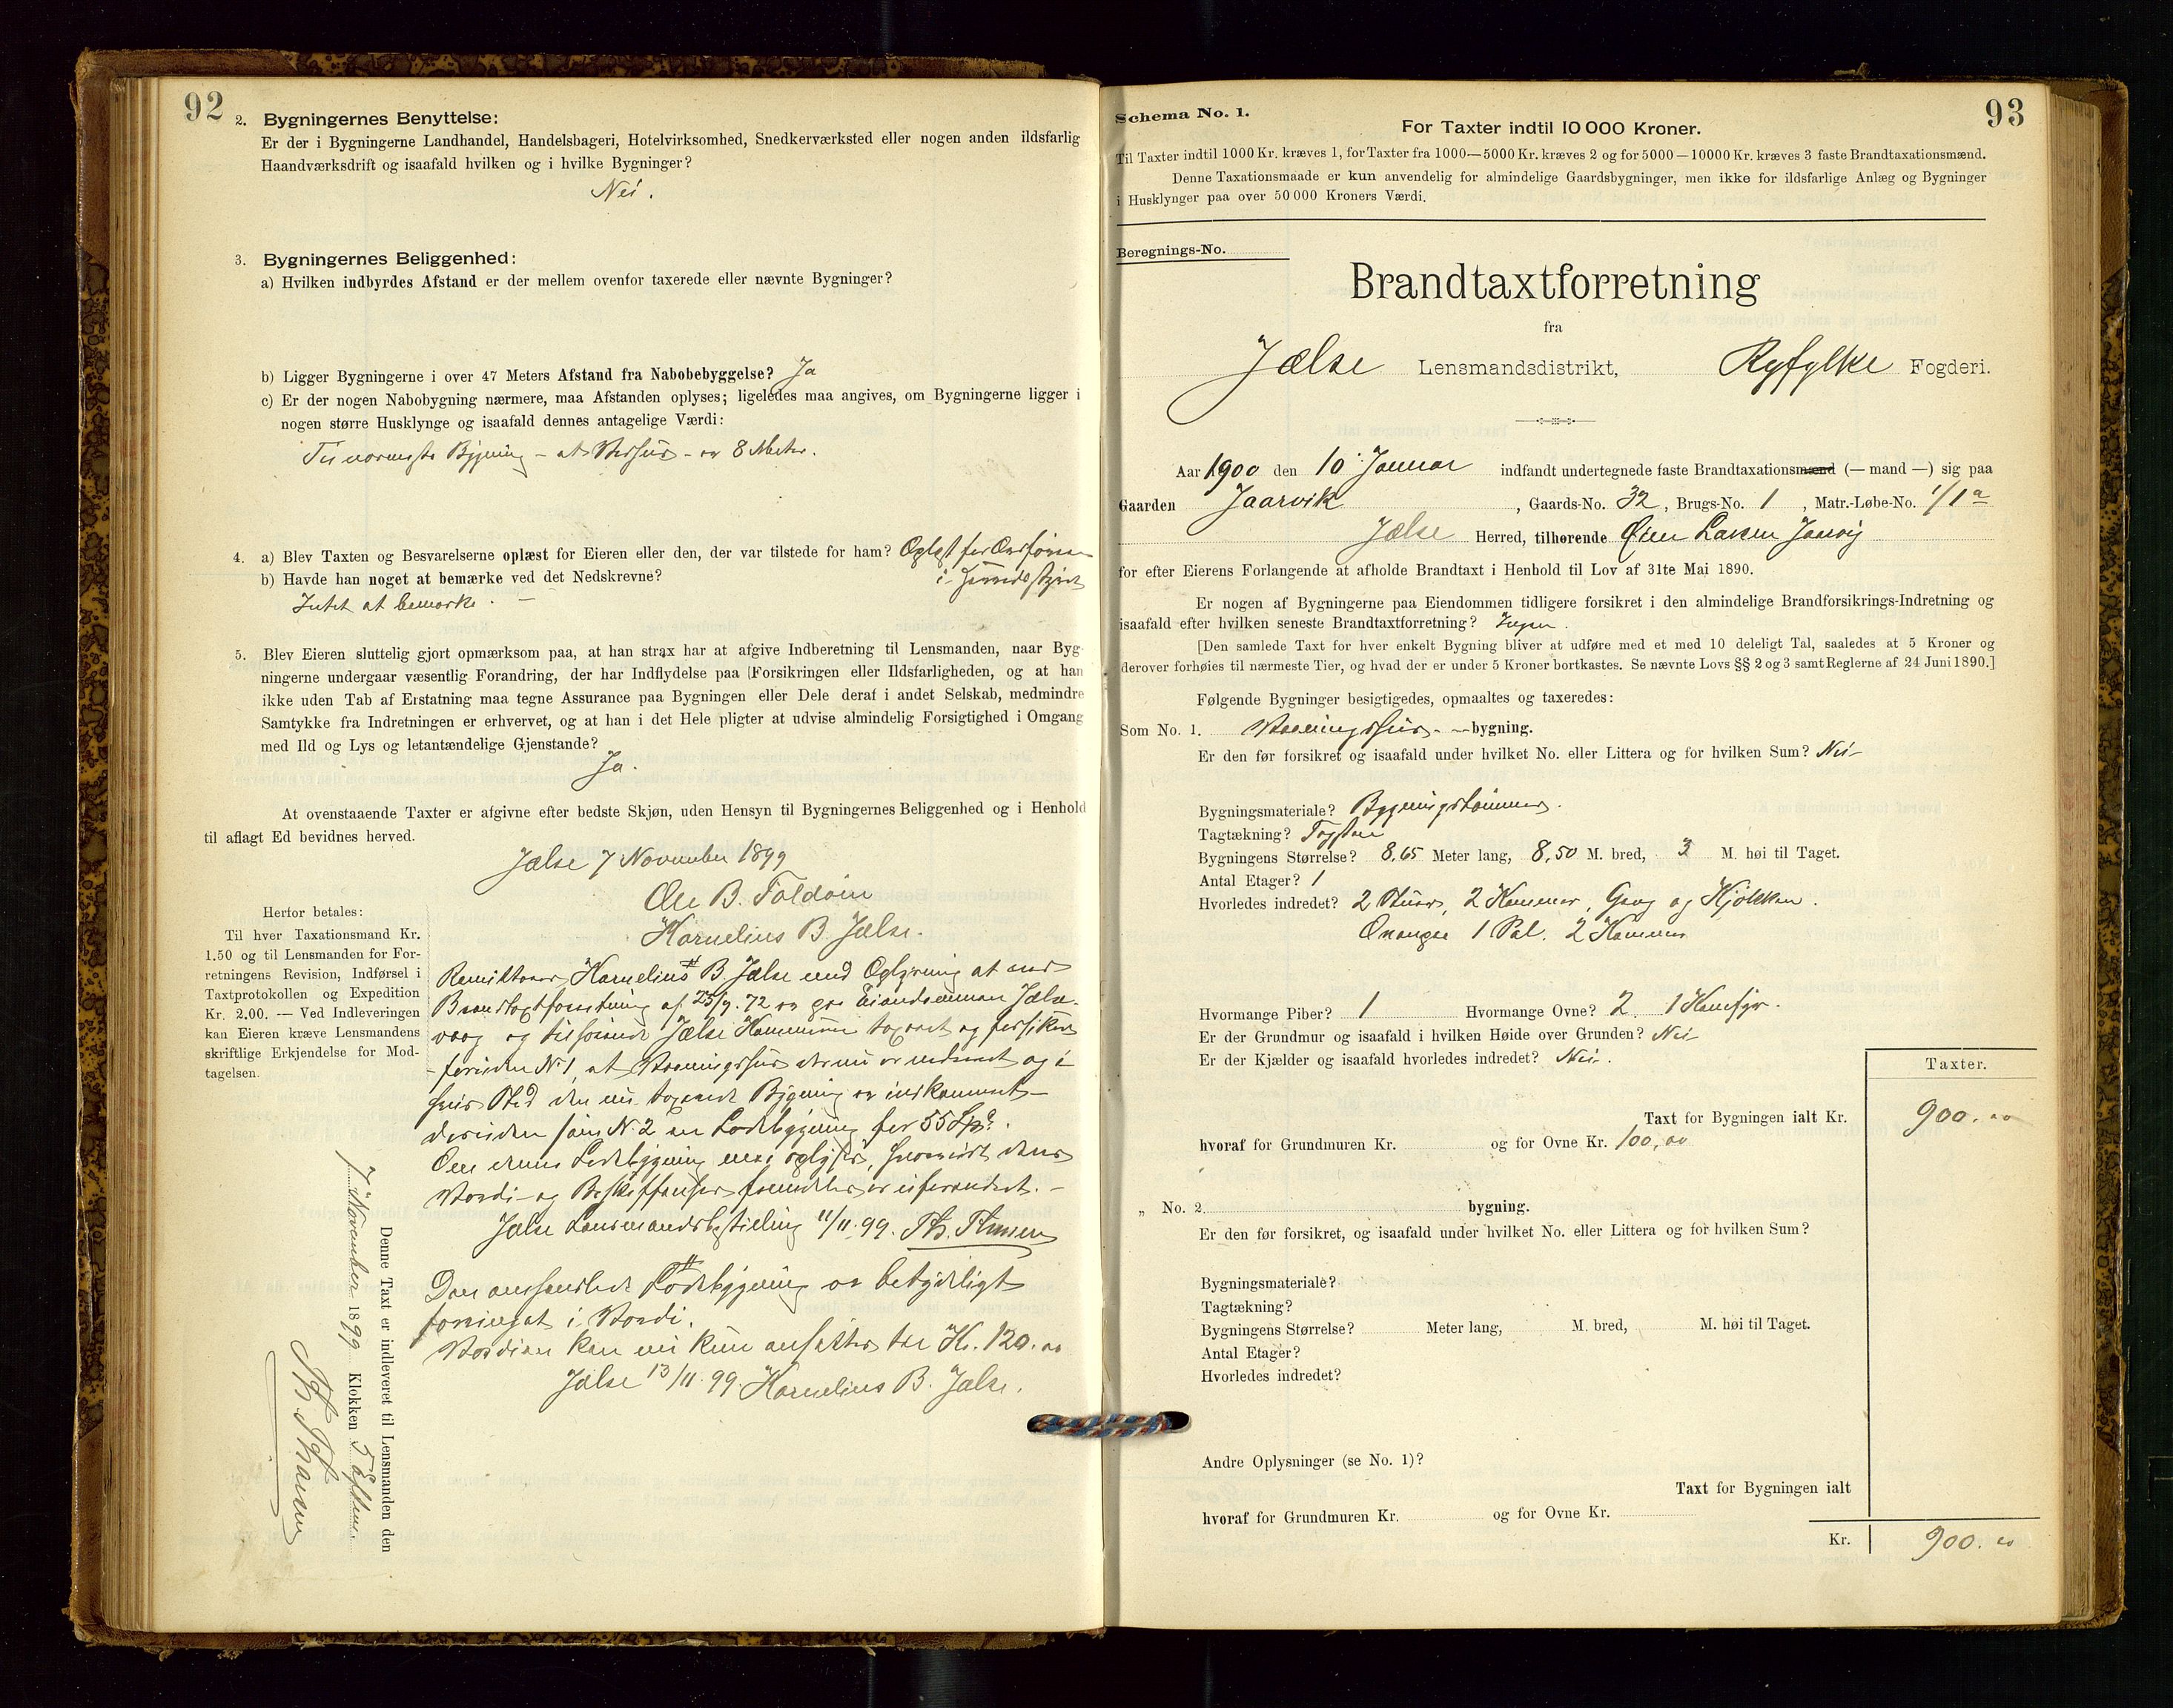 92
2. Bygningernes Benyttelse:
Er der i Bygningerne Landhandel, Handelsbageri, Hotelvirksomhed, Snedkerværksted eller nogen anden ildsfarlig
Haandværksdrift og isaafald hvilken og i hvilke Bygninger?
Nei.
3. Bygningernes Beliggenhed:
a) Hvilken indbyrdes Afstand er der mellem ovenfor taxerede eller nævnte Bygninger?
b) Ligger Bygningerne i over 47 Meters Afstand fra Nabobebyggelse? Ja
c) Er der nogen Nabobygning nærmere, maa Afstanden oplyses; ligeledes maa angives, om Bygningerne ligger i
nogen større Husklynge og isaafald dennes antagelige Værdi:
Til nærmeste Bygning – et – er 8 Meter.
4. a) Blev Taxten og Besvarelserne oplæst for Eieren eller den, der var tilstede for ham? Oplæst for
b) Havde han noget at bemærke ved det Nedskrevne?
Intet at bemærke. –
5. Blev Eieren sluttelig gjort opmærksom paa, at han strax har at afgive Indberetning til Lensmanden, naar Byg-
ningerne undergaar væsentlig Forandring, der har Indflydelse paa (Forsikringen eller Ildsfarligheden, og at han
ikke uden Tab af Erstatning maa tegne Assurance paa Bygningen eller Dele deraf i andet Selskab, medmindre
Samtykke fra Indretningen er erhvervet, og at han i det Hele pligter at udvise almindelig Forsigtighed i Omgang
med Ild og Lys og letantændelige Gjenstande?
Ja.
At ovenstaaende Taxter er afgivne efter bedste Skjøn, uden Hensyn til Bygningernes Beliggenhed og i Henhold
til aflagt Ed bevidnes herved.
Jælse 7 November 1899
Ole B. Foldøen
Kornelius B. Jælse.
Herfor betales:
Til hver Taxationsmand Kr.
1.50 og til Lensmanden for For-
retningens Revision, Indførsel i
Taxtprotokollen og Expedition
Kr. 2.00. — Ved Indleveringen
kan Eieren kræve Lensmandens
skriftlige Erkjendelse for Mod-
tagelsen.
Remitteres Kornelius B. Jælse med Oplysning at ved
Brandtaxtforretning af 25/9. 72 er paa Eiendommen Jælse-
vaag og tilhørende Jælse Kommune taxeret og forsikret
– foruden No 1, et Vaaningshus der nu er nedrevet og i
hvis Sted den nu taxerede Bygning er indkommet –
desuden som No. 2 en Ladebygning for 55 Spd.
Om denne Ladebygning oplyses, hvorvidt dens
Værdi- og Beskaffenhed fremdeles er uforandret. –
Jælse Lensmandsbestilling 11/11. 99. Th. Thu
Den omhandlede Ladebygning er betydeligt
forringet i Værdi.
Værdien kan nu kun ansættes til Kr. 120.00
Jælse 13/11. 99. Kornelius B. Jælse.
Denne Taxt er indleveret til Lensmanden den
7 November 1899 Klokken 5 Eftm.
93
Schema No. 1.
For Taxter indtil 10 000 Kroner.
Til Taxter indtil 1000 Kr. kræves 1, for Taxter fra 1000—5000 Kr. kræves 2 og for 5000—10000 Kr. kræves 3 faste Brandtaxationsmænd.
Denne Taxationsmaade er kun anvendelig for almindelige Gaardsbygninger, men ikke for ildsfarlige Anlæg og Bygninger
i Husklynger paa over 50 000 Kroners Værdi.
Beregnings-No.
Brandtaxtforretning
fra
Jælse Lensmandsdistrikt, Ryfylke Fogderi.
Aar 1900 den 10 Januar indfandt undertegnede faste Brandtaxationsmænd (— mand —) sig paa
Gaarden Jaarvik, Gaards-No. 32, Brugs-No. 1, Matr.-Løbe-No. 1/1 a
Jælse Herred, tilhørende Larsen
for efter Eierens Forlangende at afholde Brandtaxt i Henhold til Lov af 31te Mai 1890.
Er nogen af Bygningerne paa Eiendommen tidligere forsikret i den almindelige Brandforsikrings-Indretning og
isaafald efter hvilken seneste Brandtaxtforretning? Ingen.
[Den samlede Taxt for hver enkelt Bygning bliver at udføre med et med 10 deleligt Tal, saaledes at 5 Kroner og
derover forhøies til nærmeste Tier, og hvad der er under 5 Kroner bortkastes. Se nævnte Lovs §§ 2 og 3 samt Reglerne af 24 Juni 1890.]
Følgende Bygninger besigtigedes, opmaaltes og taxeredes:
Som No. 1. Vaaningshus- bygning.
Er den før forsikret og isaafald under hvilket No. eller Littera og for hvilken Sum? Nei
Bygningsmateriale? Bygningstømmer.
Tagtækning? Tagsten
Bygningens Størrelse? 8,65 Meter lang, 8,50 M. bred, 3 M. høi til Taget.
Antal Etager? 1
Hvorledes indredet? 2 Stuer, 2 Kammer, Gang og Kjøkken.
Ovenpaa 1 Sal. 2 Kammer
Hvormange Piber? 1 Hvormange Ovne? 2. 1 Komfyr.
Er der Grundmur og isaafald i hvilken Høide over Grunden? Nei
Er der Kjælder og isaafald hvorledes indredet? Nei.
Taxter.
Taxt for Bygningen ialt Kr. 900.00
hvoraf for Grundmuren Kr. og for Ovne Kr. 100,00
„ No. 2 bygning.
Er den før forsikret, og isaafald under hvilket No. eller Littera og for hvilken Sum?
Bygningsmateriale?
Tagtækning?
Bygningens Størrelse? Meter lang, M. bred, M. høi til Taget.
Antal Etager?
Hvorledes indredet?
Andre Oplysninger (se No. 1)?
Taxt for Bygningen ialt
hvoraf for Grundmuren Kr. og for Ovne Kr.
Kr. 900.00